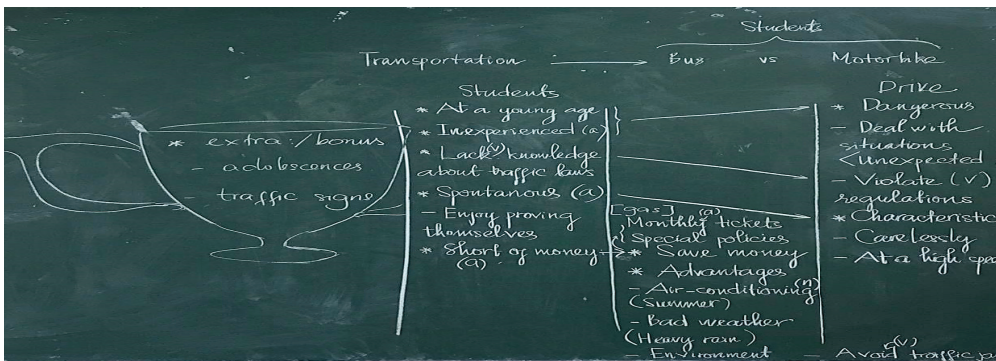 Students
Transportation → Bus vs Motorbike
* extra/bonus
- adolescences
- traffic signs
Students
* At a young age
* Inexperienced (a)
* Lack (v) knowledge
about traffic laws
* Spontanous (a)
- Enjoy proving
themselves
* Short of money
(a)
[gas] (a)
Monthly tickets
Special policies
* Save money
* Advantages
- Air-conditioning (n)
(Summer)
- Bad weather
(Heavy rain)
- Environment
Drive
* Dangerous
- Deal with
situations
<unexpected
- Violate (v)
regulations
* Characteristic
- Carelessly
- At a high spee
- Avoid (v) traffic j